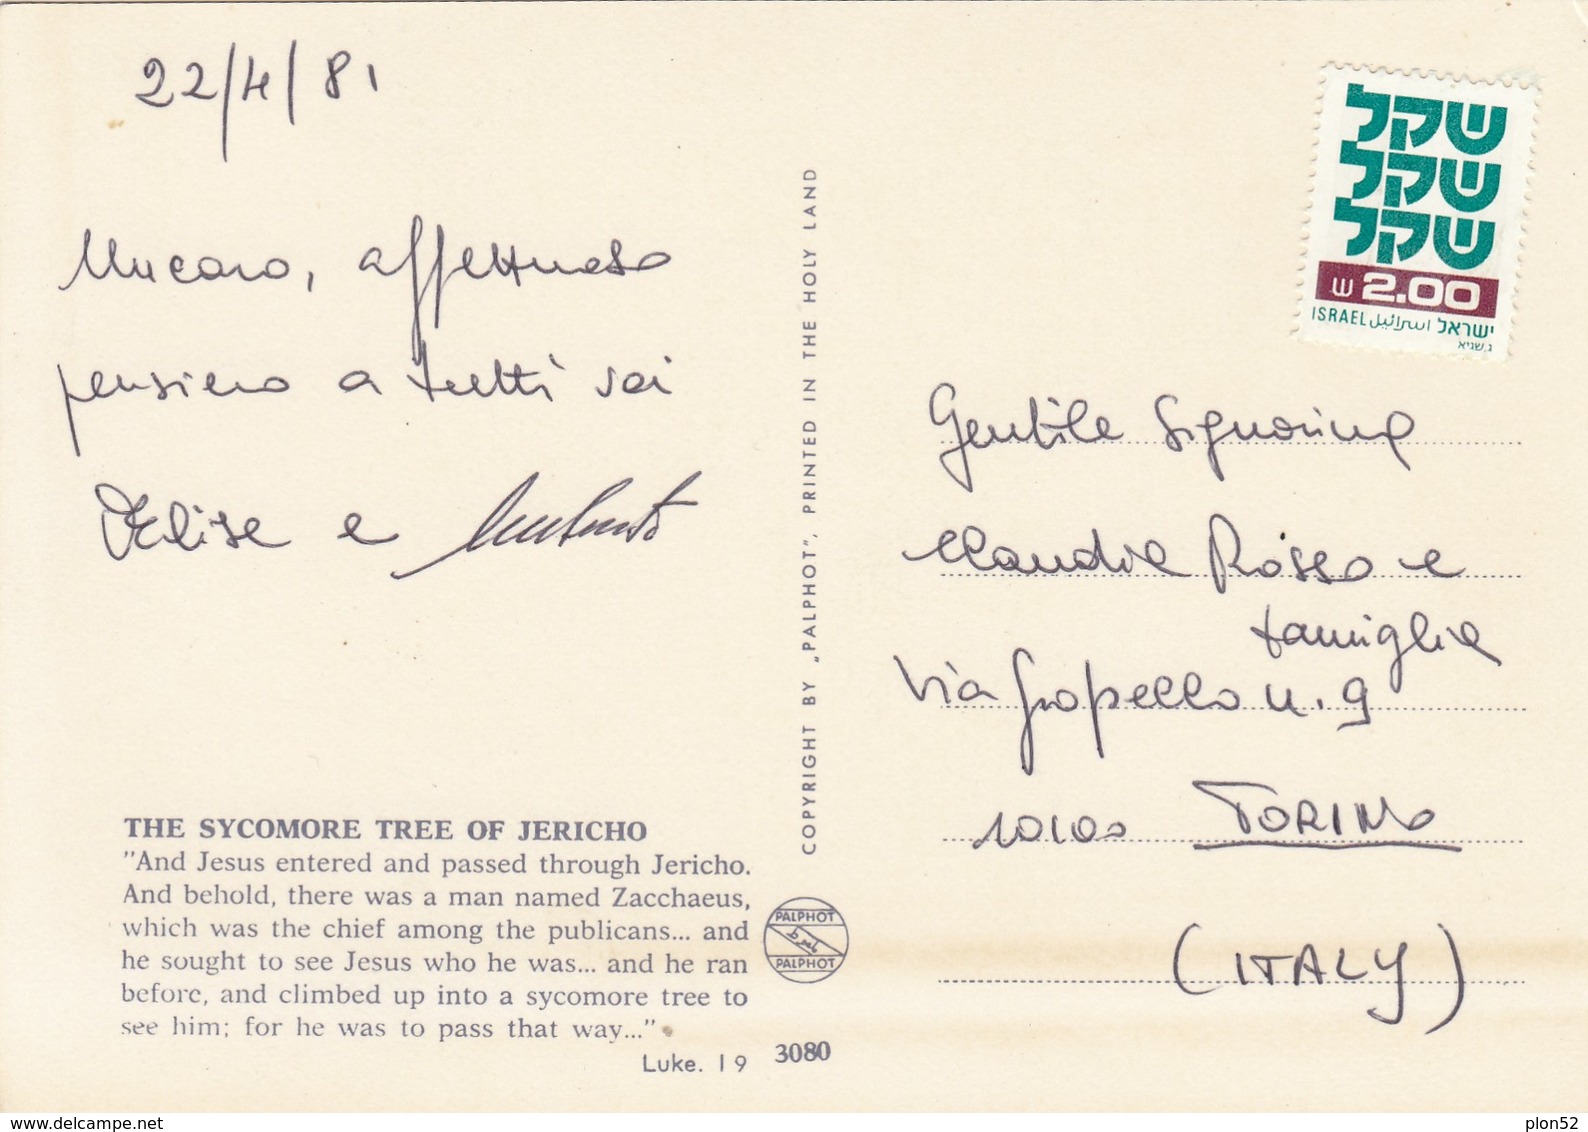 22/4/81
Un caro, affettuoso
pensiero a tutti voi
Elise e Umberto
THE SYCOMORE TREE OF JERICHO
"And Jesus entered and passed through Jericho.
And behold, there was a man named Zacchaeus,
which was the chief among the publicans... and
he sought to see Jesus who he was... and he ran
before, and climbed up into a sycomore tree to
see him; for he was to pass that way..."
Luke. 19
3080
PALPHOT
PALPHOT
COPYRIGHT BY „PALPHOT”, PRINTED IN THE HOLY LAND
שקל
שקל
שקל
ש 2.00
ISRAEL اسرائيل ישראל
Gentile Signorina
Claudia Rosso e
famiglia
Via Gropello n. 9
10100 TORINO
(ITALY)
delcampe.net
plon52